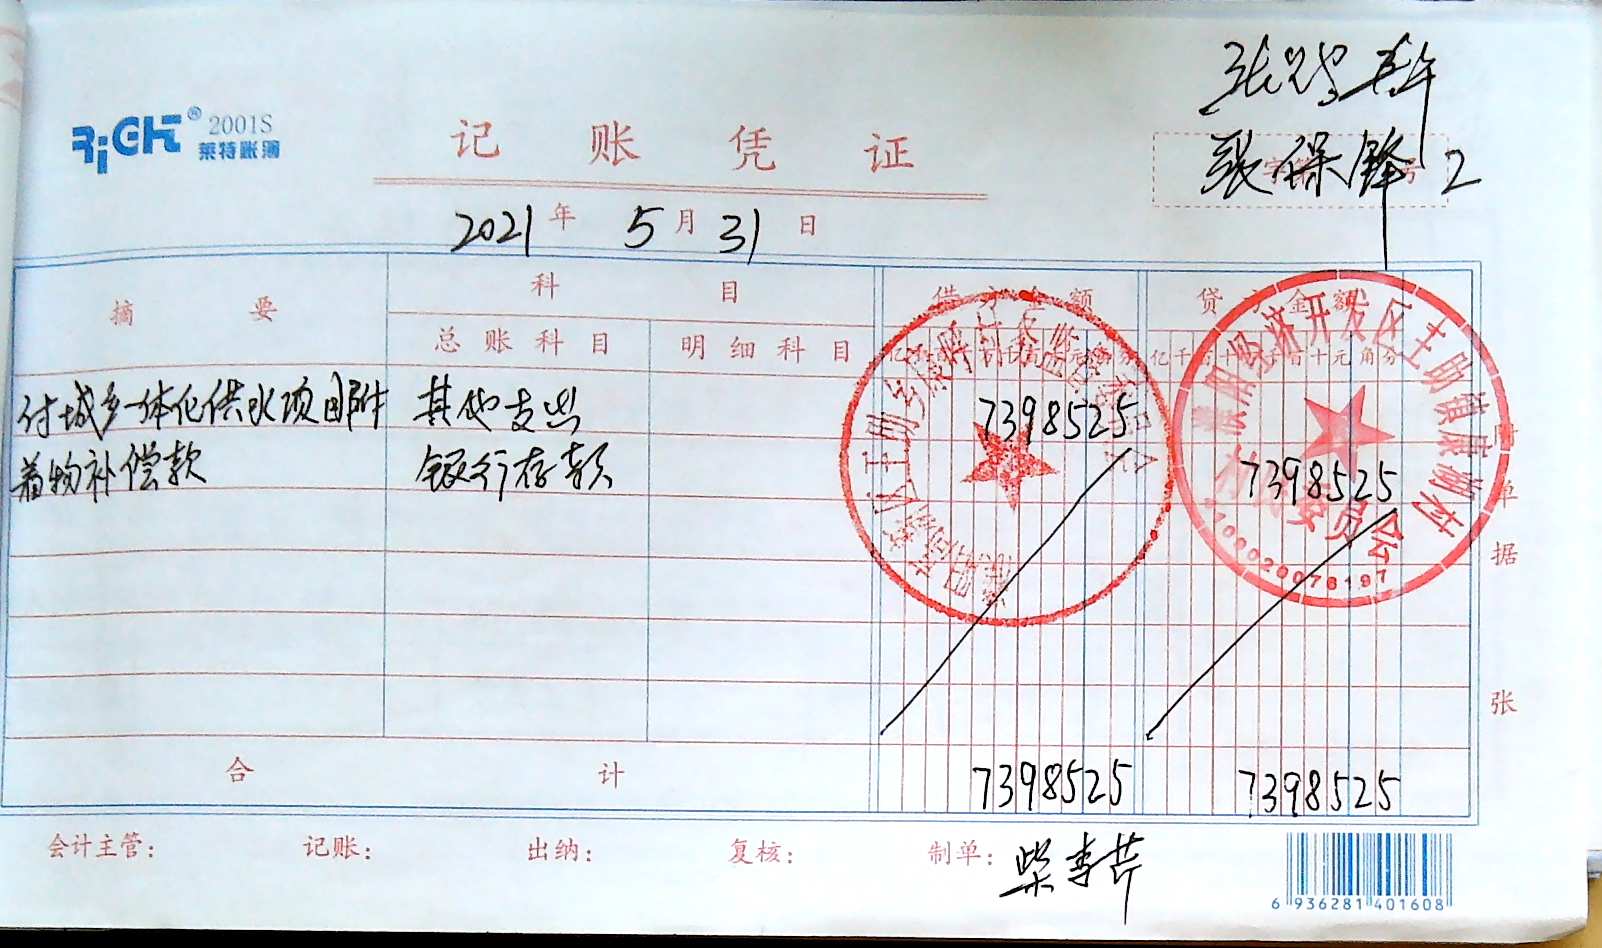 RiGHT® 2001S
莱特账簿
记账凭证
张保锋 2
2021年5月31日
摘要 科目 借方金额 贷方金额
总账科目 明细科目 亿千百十万千百十元角分 亿千百十万千百十元角分
付城乡一体化供水项目附 其他支出 7398525
着物补偿款 银行存款 7398525
单据 张
经济开发区王助镇康湖村
村民委员会
4100020076197
合计 7398525 7398525
会计主管: 记账: 出纳: 复核: 制单:
6 936281 401608